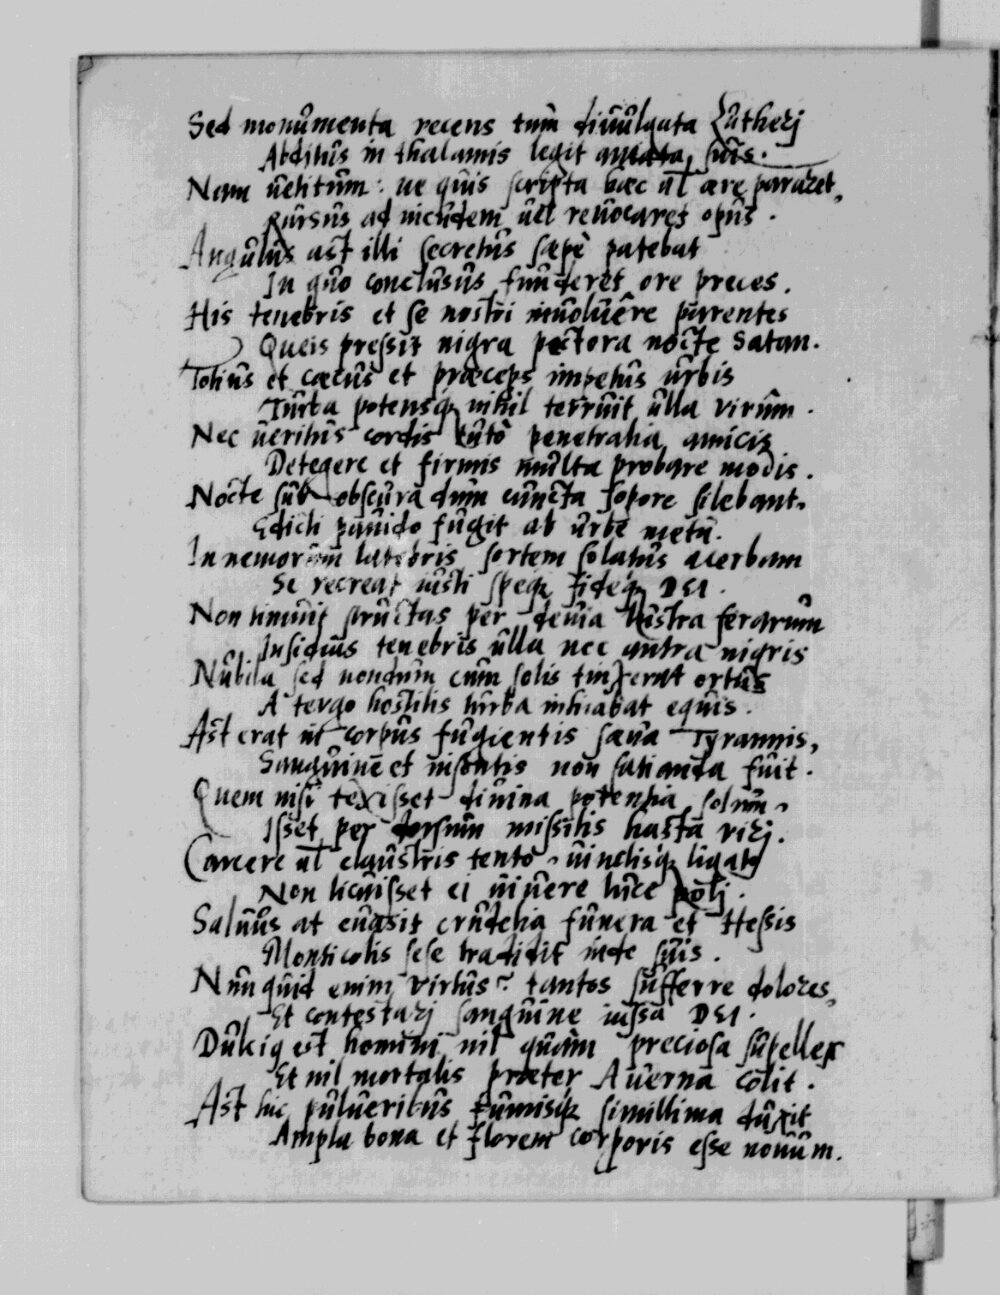 Sed monumenta recens tum diuulgata Lutherj
Abditus in thalamis legit amata suis.
Nam uetitum: ne quis scripta haec uel aere pararet,
Rursus ad incudem uel reuocaret opus.
Angulus ast illi secretus saepè patebat
In quo conclusus funderet ore preces.
His tenebris et se nostri inuoluêre parentes
Queis pressit nigra pectora nocte Satan.
Totius et caecus et praeceps impetus urbis
Turba potensq nihil terruit ulla virum.
Nec ueritus cordis tutò penetralia amicis
Detegere et firmis multa probare modis.
Nocte sub obscura dum cuncta sopore silebant,
Edicti pauido fugit ab urbe metu.
In nemorum latebris sortem solatus acerbam
Se recreat iusti speq fideq DEI.
Non timuit structas per deuia lustra ferarum
Insidias tenebris ulla nec antra nigris
Nubila sed nondum cum solis tinxerat ortus
A tergo hostilis turba inhiabat equis.
Ast erat ut corpus fugientis saeua Tyrannis,
Sanguine et insontis non satianda fuit.
Quem nisi texisset diuina potentia solum,
Isset per dorsum missilis hasta virj.
Carcere uel claustris tento, uinclisq ligato
Non licuisset ei uiuere luce polj.
Saluus at euasit crudelia funera et Hessis
Monticolis sese tradidit inde suis.
Nunquid enim virtus? tantos sufferre dolores,
Et contestarj sanguine iussa DEI.
Dulcius est homini nil quàm preciosa supellex
Et nil mortalis praeter Auerna colit.
Ast hic pulueribus fumisq simillima duxit
Ampla bona et florem corporis esse nouum.